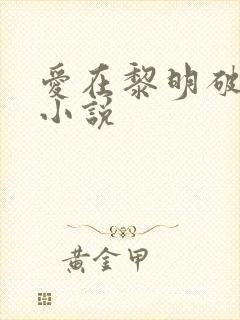 愛在黎明破
小説
黃金甲